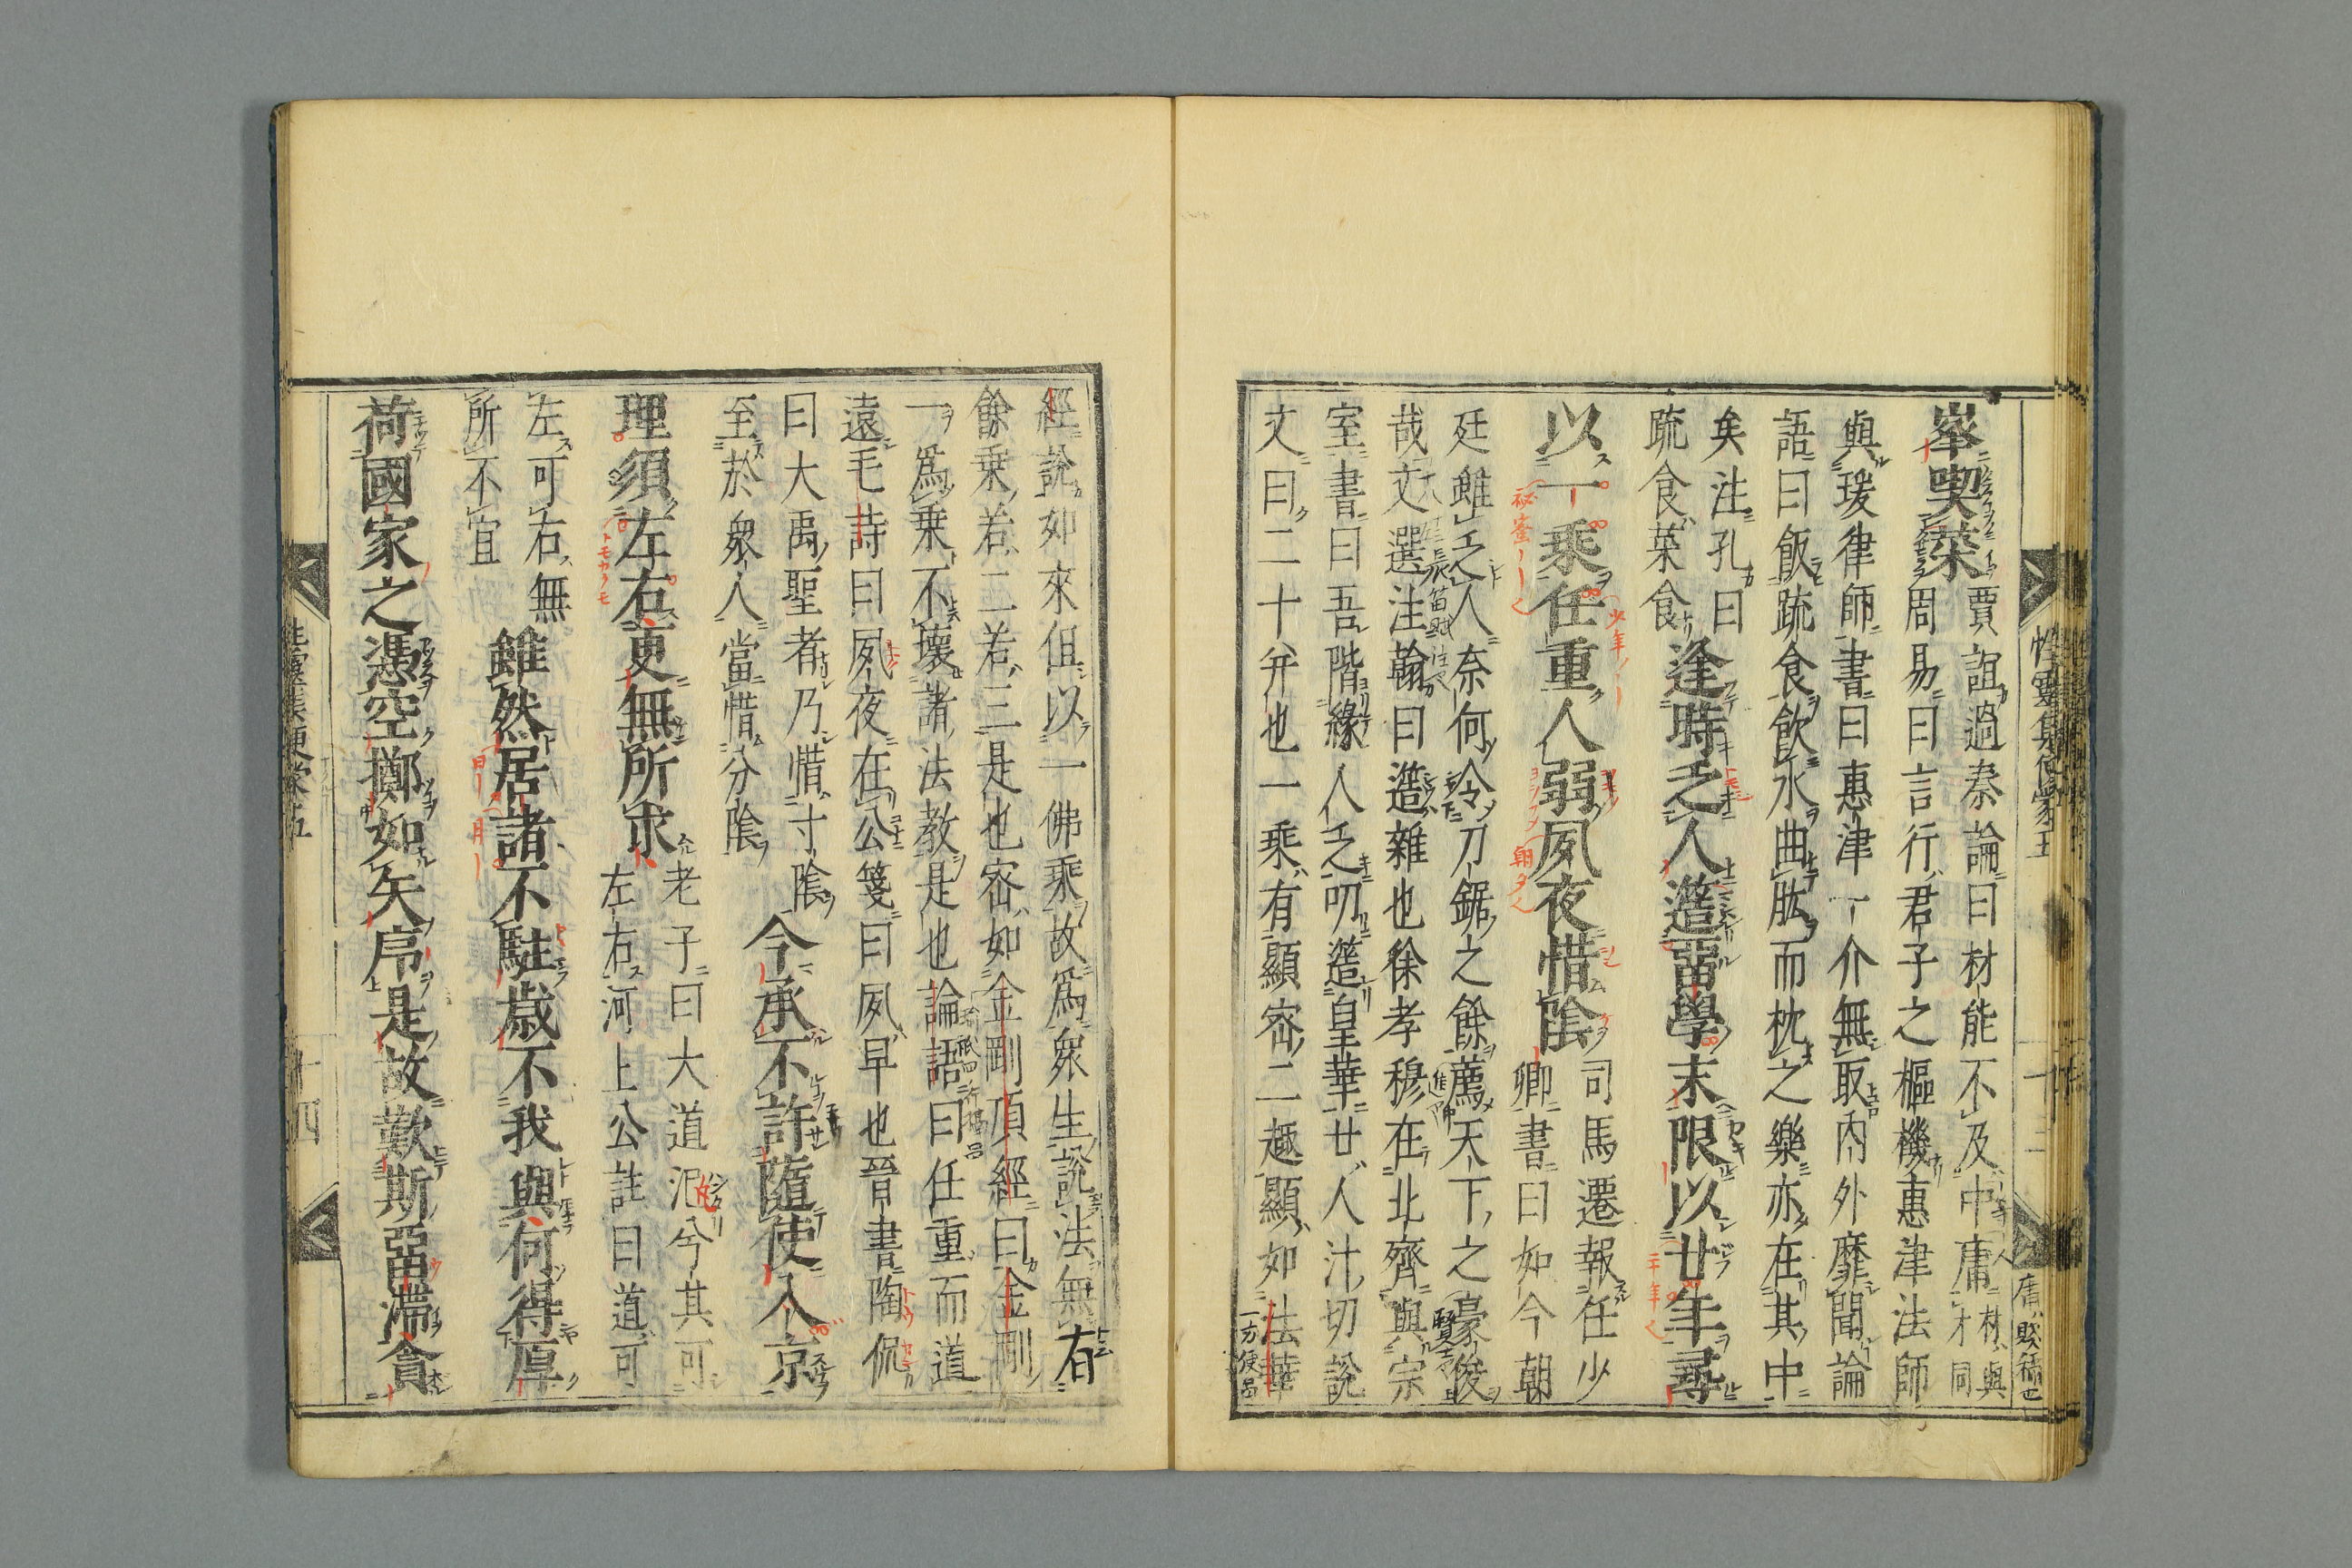 賈誼過秦論曰材能不及中庸
喫菜周易曰言行君子之樞機惠津法師
與瑗律師書曰惠津一介無取內外靡聞論
語曰飯疏食飲水曲肱而枕之樂亦在其中
矣注孔曰
疏食菜食
逢時乏人簉留學末限以廿年尋
以一乘任重人弱夙夜惜陰
司馬遷報任少
卿書曰如今朝
廷雖乏人奈何令刀鋸之餘薦天下之豪俊
哉文選注翰曰簉雜也徐孝穆在北齊與宗
室書曰吾階緣人乏叨簉皇華廿人汁切說
文曰二十并也一乘有顯密二趣顯如法華
經說如來但以一佛乘故爲衆生說法無有
餘乘若二若三是也密如金剛頂經曰金剛
一爲乘不壞諸法教是也論語曰任重而道
遠毛詩曰夙夜在公箋曰夙早也晉書陶侃
曰大禹聖者乃惜寸陰
至於衆人當惜分陰
今承不許隨使入京
理須左右更無所求
老子曰大道氾兮其可
左右河上公註曰道可
左可右無
所不宜
雖然居諸不駐歲不我與何得厚
荷國家之憑空擲如矢序是故歎斯留滯貪
十四